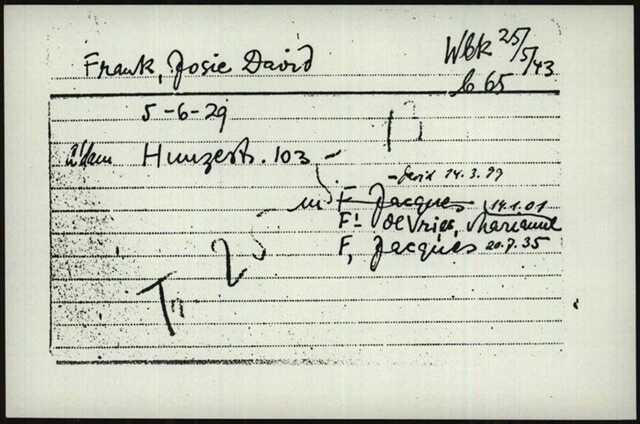 Frank, Josie David
Wbk 25/5/43
b 65
5-6-29
A'dam Hunzestr. 103 -
13
14.3.99
m F Jacques 14.1.01
F- de Vries, Marianne
F, Jacques 20.7.35
2